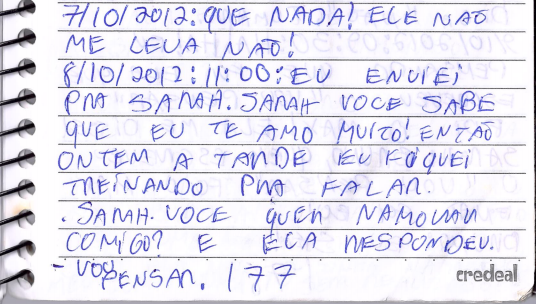 7/10/2012: QUE NADA! ELE NÃO
ME LEVA NÃO!
8/10/2012: 11:00: EU ENVIEI
PRA SARAH. SARAH VOCE SABE
QUE EU TE AMO MUITO! ENTÃO
ONTEM A TARDE EU FIQUEI
TREINANDO PRA FALAR.
. SARAH. VOCE QUER NAMORAR
COMIGO? E ELA RESPONDEU.
- VOU PENSAR. 177
credeal